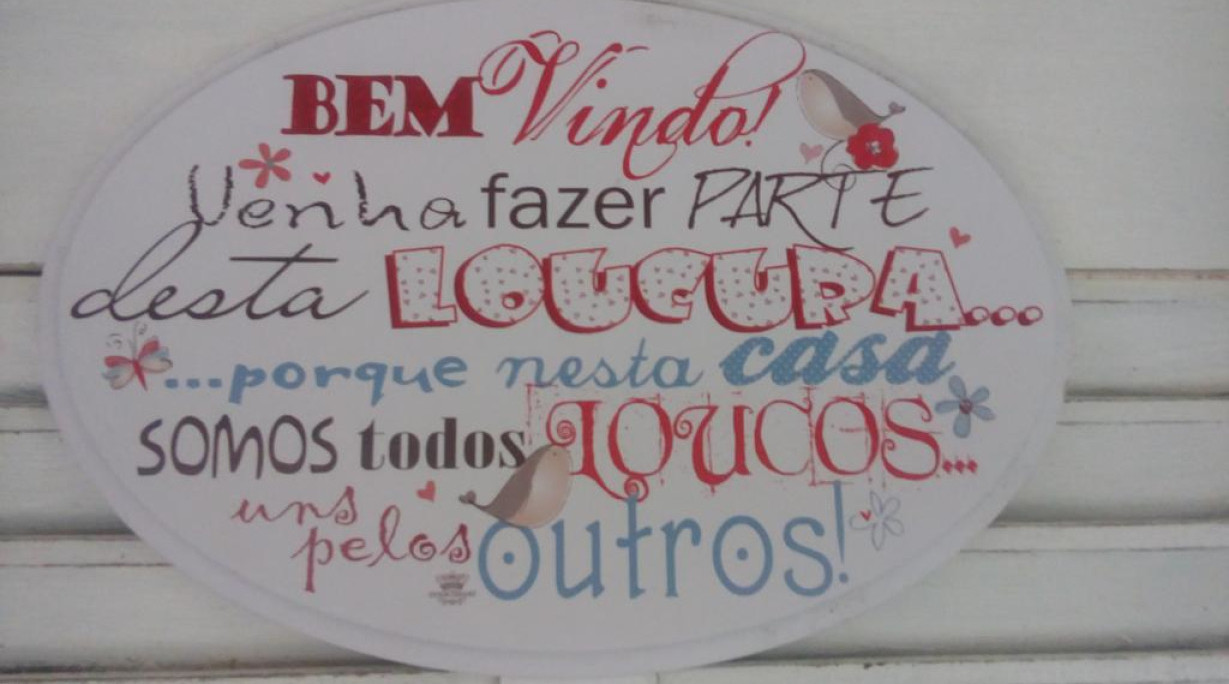 BEM Vindo!
Venha fazer PARTE
desta LOUCURA...
...porque nesta casa
SOMOS todos LOUCOS...
uns
pelos outros!